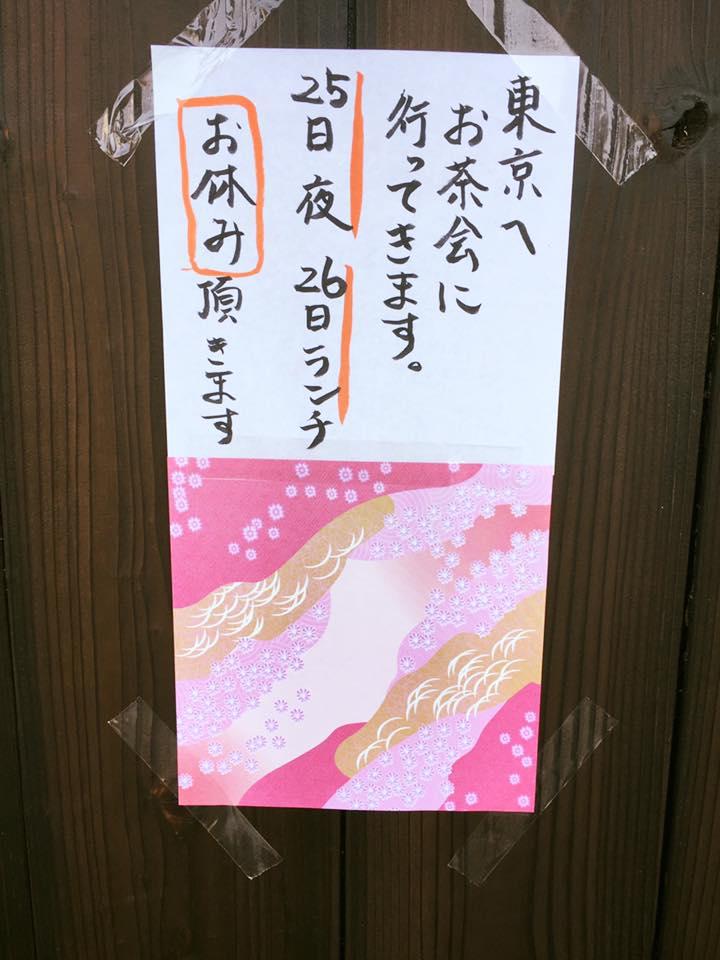 東京へ
お茶会に
行ってきます。
25日夜 26日ランチ
お休み頂きます